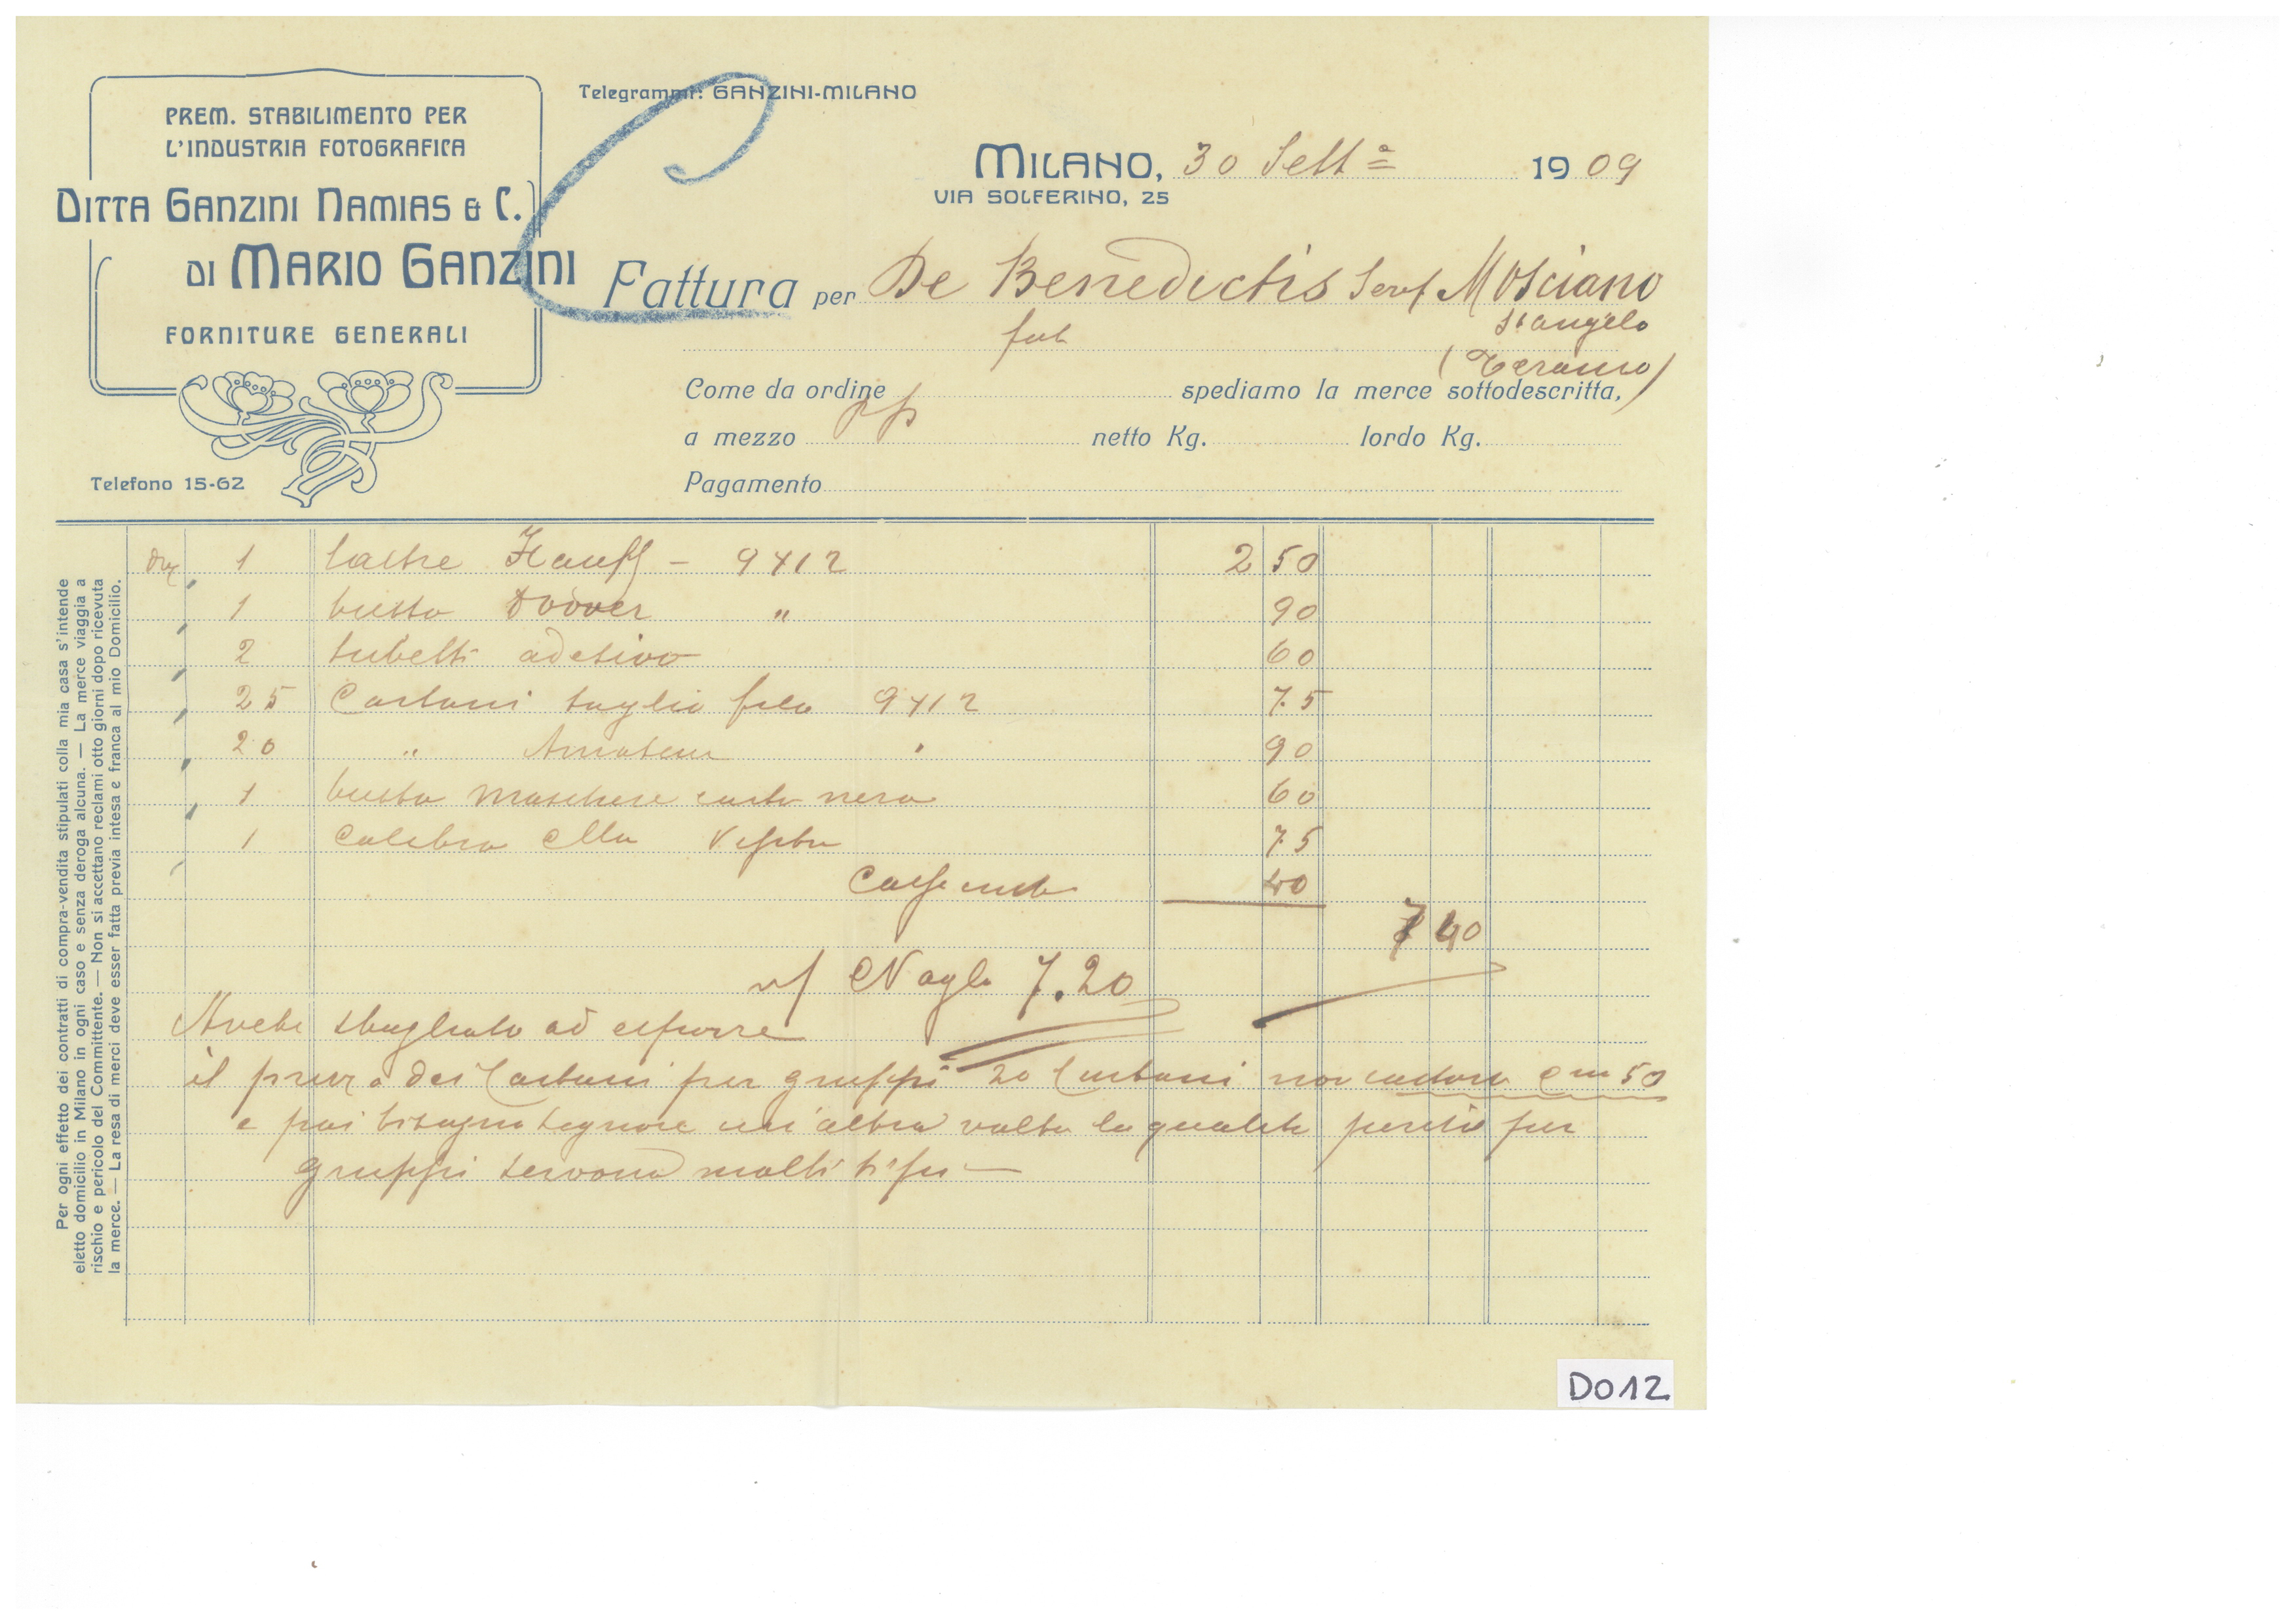 Telegrammi: GANZINI-MILANO
PREM. STABILIMENTO PER
L'INDUSTRIA FOTOGRAFICA
DITTA GANZINI NAMIAS & C.
DI MARIO GANZINI
FORNITURE GENERALI
Telefono 15-62
MILANO, 30 Sett.e 1909
VIA SOLFERINO, 25
Fattura per De Benedictis Serf Mosciano
St angelo
fot
(Teramo)
Come da ordine spediamo la merce sottodescritta,
a mezzo pp netto Kg. lordo Kg.
Pagamento
Dz 1 lastre Hauff - 9X12 2 50
1 busta " 90
2 tubetti adesivo 60
25 Cartoni taglio 9X12 75
20 " Amateur " 90
1 busta maschere carta nera 60
1 75
40
7 40
Vaglia 7.20
Avete sbagliato ad esporre
il prezzo dei Cartoni per gruppi 20 Cartoni non costano Cm 50
e poi bisogna segnare un'altra volta la qualità perché per
gruppi servono molti tipi —
Per ogni effetto dei contratti di compra-vendita stipulati colla mia casa s'intende
eletto domicilio in Milano in ogni caso e senza deroga alcuna. — La merce viaggia a
rischio e pericolo del Committente. — Non si accettano reclami otto giorni dopo ricevuta
la merce. — La resa di merci deve esser fatta previa intesa e franca al mio Domicilio.
D012